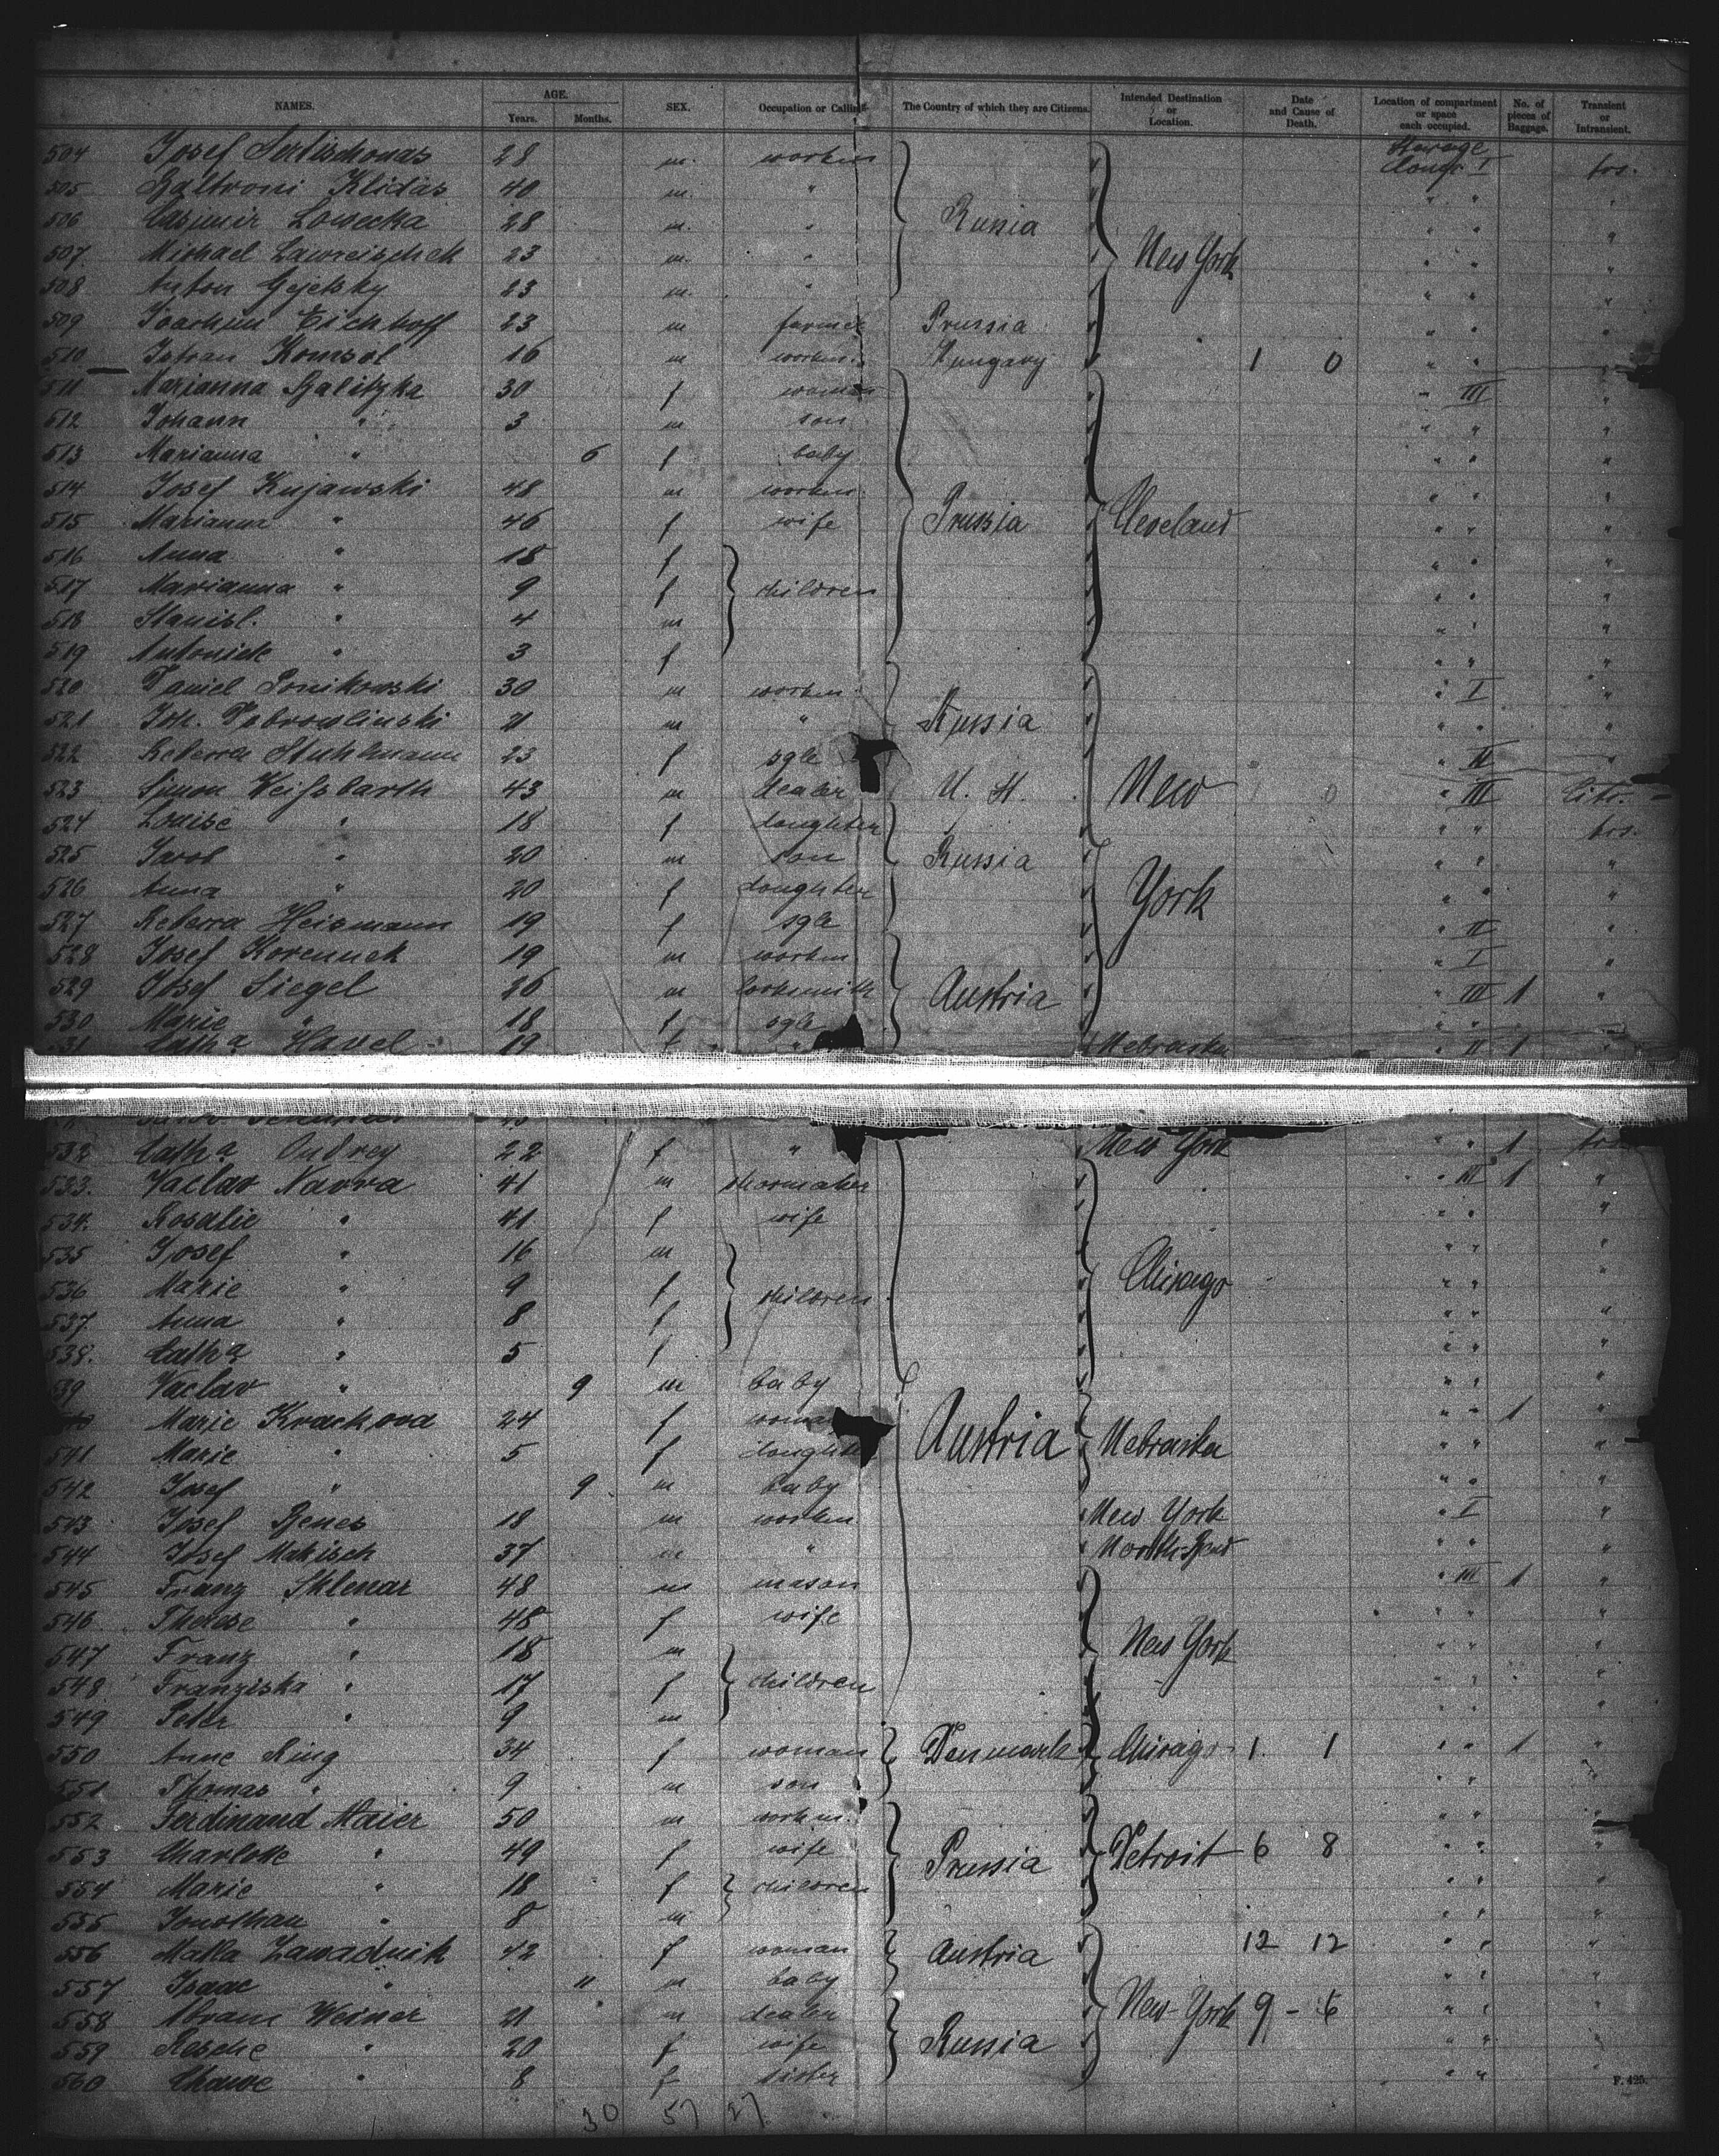 NAMES. AGE. Years. Months. SEX. Occupation or Calling The Country of which they are Citizens. Intended Destination or Location. Date and Cause of Death. Location of compartment or space each occupied. No. of pieces of Baggage. Transient or Intransient.
504 Josef 28 m. workm Steerage I trs.
505 Klidas 40 m. "
506 Casimir 28 m. " Russia
507 Michael 23 m. " New York
508 Anton 23 m. "
509 Joachim Eichhoff 23 m farmer Prussia
510 Istvan 16 m workm. Hungary 1 0
511 Marianna 30 f woman " III "
512 Johann " 3 m son
513 Marianna " 6 f baby
514 Josef Kujawski 48 m workm.
515 Mariann " 46 f wife Prussia Cleveland
516 Anna " 18 f
517 Marianna " 9 f children
518 Stanisl. " 4 m
519 " 3 f
520 Daniel Ponikowski 30 m workm. " I "
521 Joh. 21 m " Russia
522 Rebecca Stuhlmann 23 f sgle " II
523 Simon Weissbarth 43 m dealer U. St. New 1 0 " III
524 Louise " 18 f doughter trs.
525 Jacob " 20 m son Russia
526 Anna " 20 f doughter York
527 Rebecca Heismann 19 f sgle " II "
528 Josef Korennek 19 m workm " I "
529 Josef Siegel 26 m locksmith Austria " III 1 "
530 Marie " 18 f sgle
531 Catha Havel 19 f " Nebraska " II 1 "
532 Catha 22 f " New York " " 1 trs
533. Vaclav Navra 41 m shoemaker " III 1 "
534. Rosalie " 41 f wife
535 Josef " 16 m
536 Marie " 9 f children Chicago
537 Anna " 8 f
538. Catha " 5 f
539 Vaclav " 9 m baby
Marie Krachova 24 f woman " " 1 "
541 Marie " 5 f doughter Austria Nebraska
542 Josef " 9 m baby
543 Josef Benes 18 m workm New York " I "
544 Josef Makisch 37 m " North-Bend
545 Franz Sklenar 48 m mason " III 1 "
546 Therese " 48 f wife
547 Franz " 18 m New York
548 Franziska " 17 f children
549 Peter " 9 m
550 Anne Ring 34 f woman Denmark Chicago 1 1 " " 1 "
551 Thomas " 9 m son
552 Ferdinand Maier 50 m workm.
553 Charlotte " 49 f wife Prussia Detroit 6 8
554 Marie " 18 f children
555 Jonathan " 8 m
556 Malka Zawadnik 42 f woman Austria 12 12
557 Isaac " 11 m baby
558 Abram Weiner 21 m dealer New-York 9 - 6
559 Resche " 20 f wife Russia
560 Chawe " 8 f sister
F. 425.
30 57 27